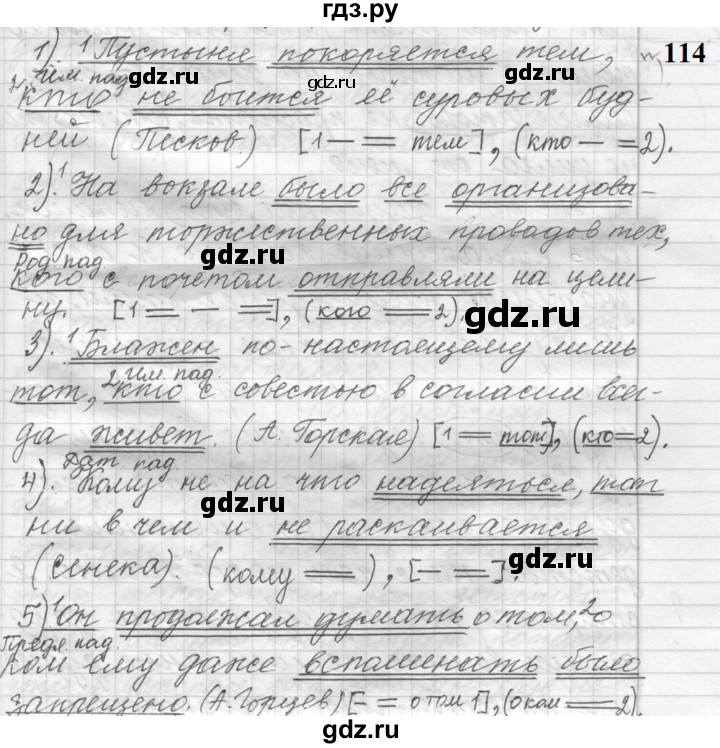 гдз.ру
114
1). 1 Пустыня покоряется тем,
2 Им. пад.
кто не боится её суровых буд-
ней (Песков) [1 — = тем], (кто — = 2).
2). 1 На вокзале было все организова-
но для торжественных проводов тех,
Род. пад
кого с почетом отправляли на цели-
ну. [1 = — =], (кого = 2).
3). 1 Блажен по-настоящему лишь
2 Им. пад.
тот, кто с совестью в согласии всег-
да живет. (А. Горская) [1 = тот], (кто = 2).
Дат пад
4). Кому не на что надеяться, тот
ни в чем и не раскаивается
(Сенека). (кому =), [— =].
5) 1 Он продолжал думать о том, 2 о
Предл. пад.
ком ему даже вспоминать было
запрещено. (А. Горцев) [— = о том 1], (о ком = 2).
gdz.ru
gdz.ru
gdz.ru
gdz.ru
gdz.ru
gdz.ru
gdz.ru
gdz.ru
gdz.ru
gdz.ru
gdz.ru
gdz.ru
gdz.ru